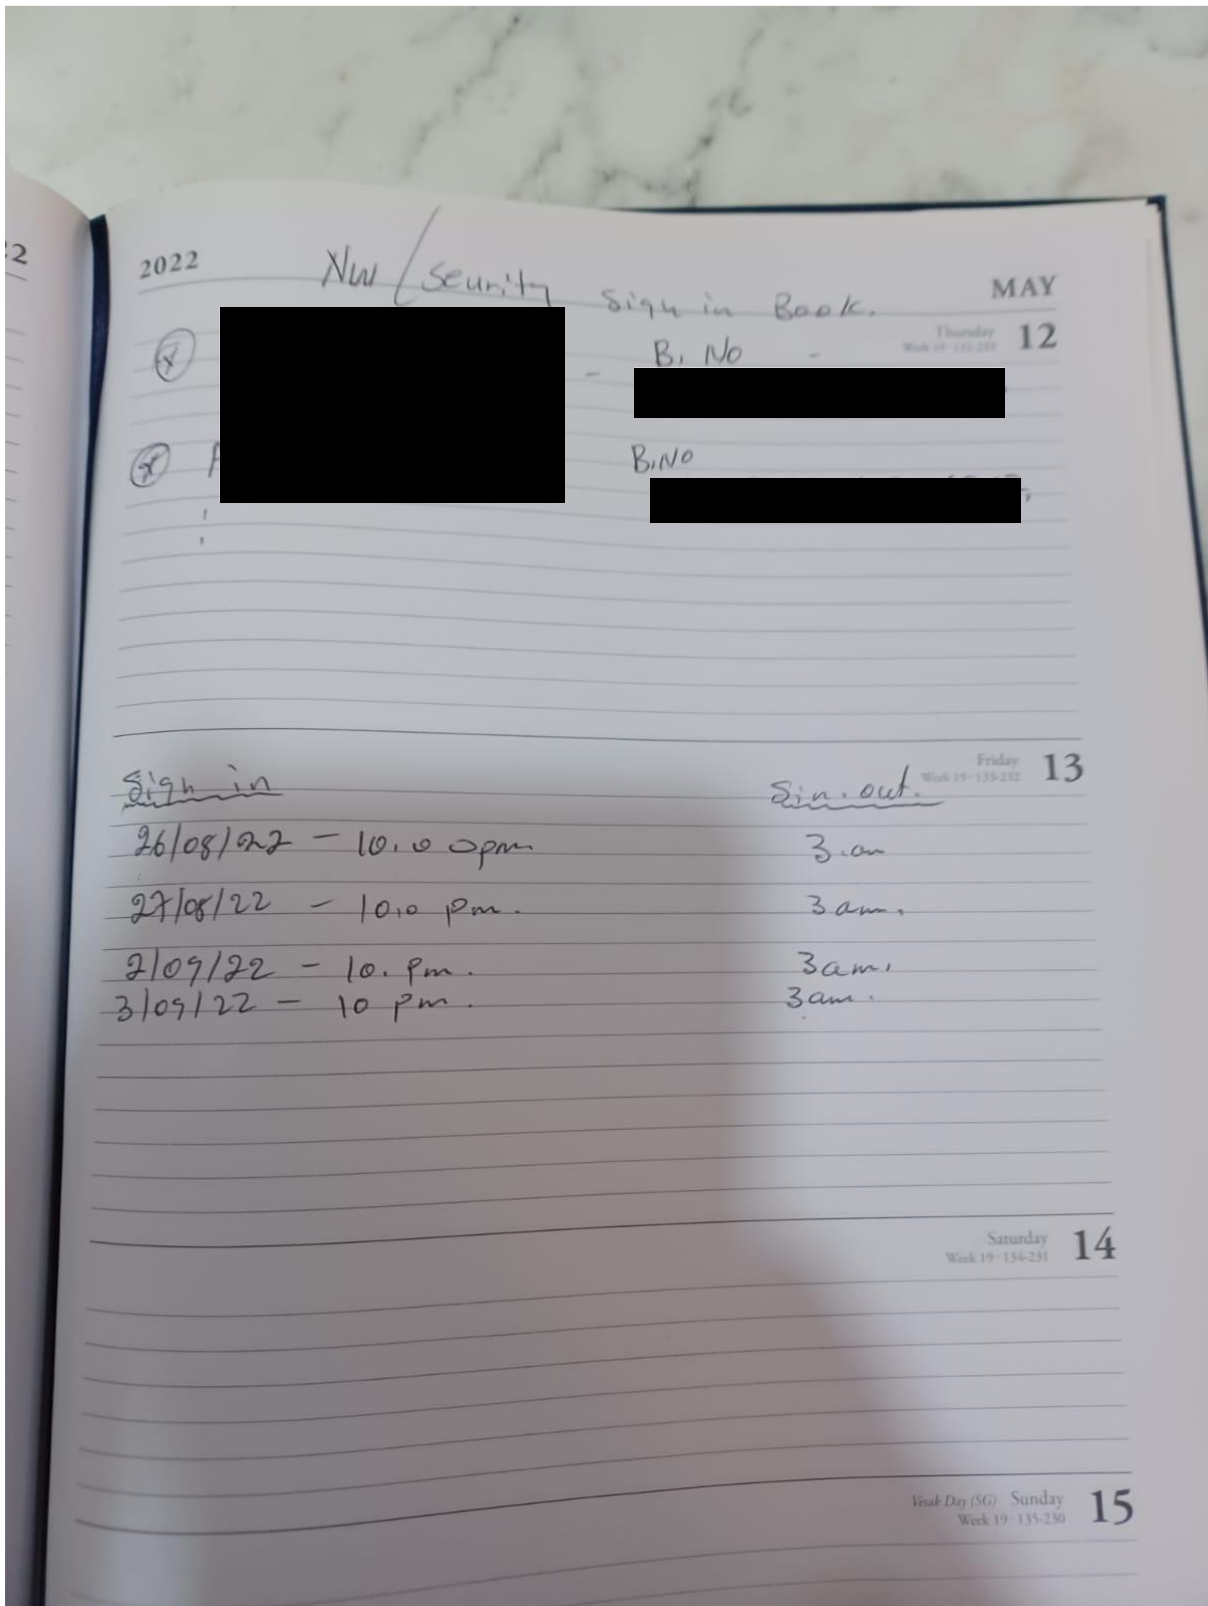 2
2022 MAY
NW / Seurity Sign in Book.
Thursday 12
Week 19
B. No -
B.No
Friday 13
Week 19 · 133-232
Sign in Sin. out.
26/08/22 - 10.00pm 3.am
27/08/22 - 10.0 pm. 3 am.
2/09/22 - 10. pm. 3am.
3/09/22 - 10 pm. 3am.
Saturday 14
Week 19 · 134-231
Vesak Day (SG) Sunday 15
Week 19 · 135-230